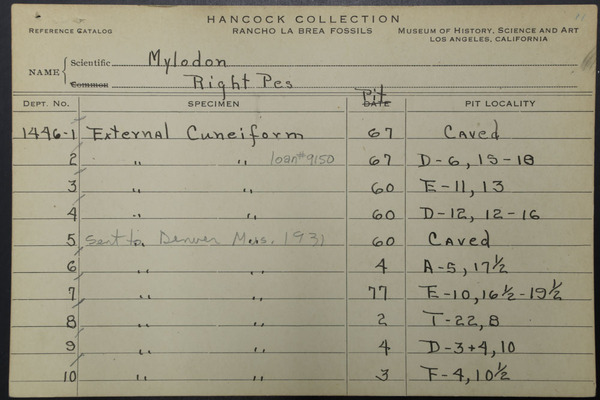 HANCOCK COLLECTION
REFERENCE CATALOG RANCHO LA BREA FOSSILS MUSEUM OF HISTORY, SCIENCE AND ART
LOS ANGELES, CALIFORNIA
NAME { Scientific Mylodon
Common Right Pes
Pit
DEPT. NO. SPECIMEN DATE PIT LOCALITY
1446-1 External Cuneiform 67 Caved
2 " " loan#9150 67 D-6, 15-18
3 " " 60 E-11, 13
4 " " 60 D-12, 12-16
5 Sent to Denver Mus. 1931 60 Caved
6 " " 4 A-5, 17½
7 " " 77 E-10, 16½-19½
8 " " 2 T-22, 8
9 " " 4 D-3+4, 10
10 " " 3 F-4, 10½